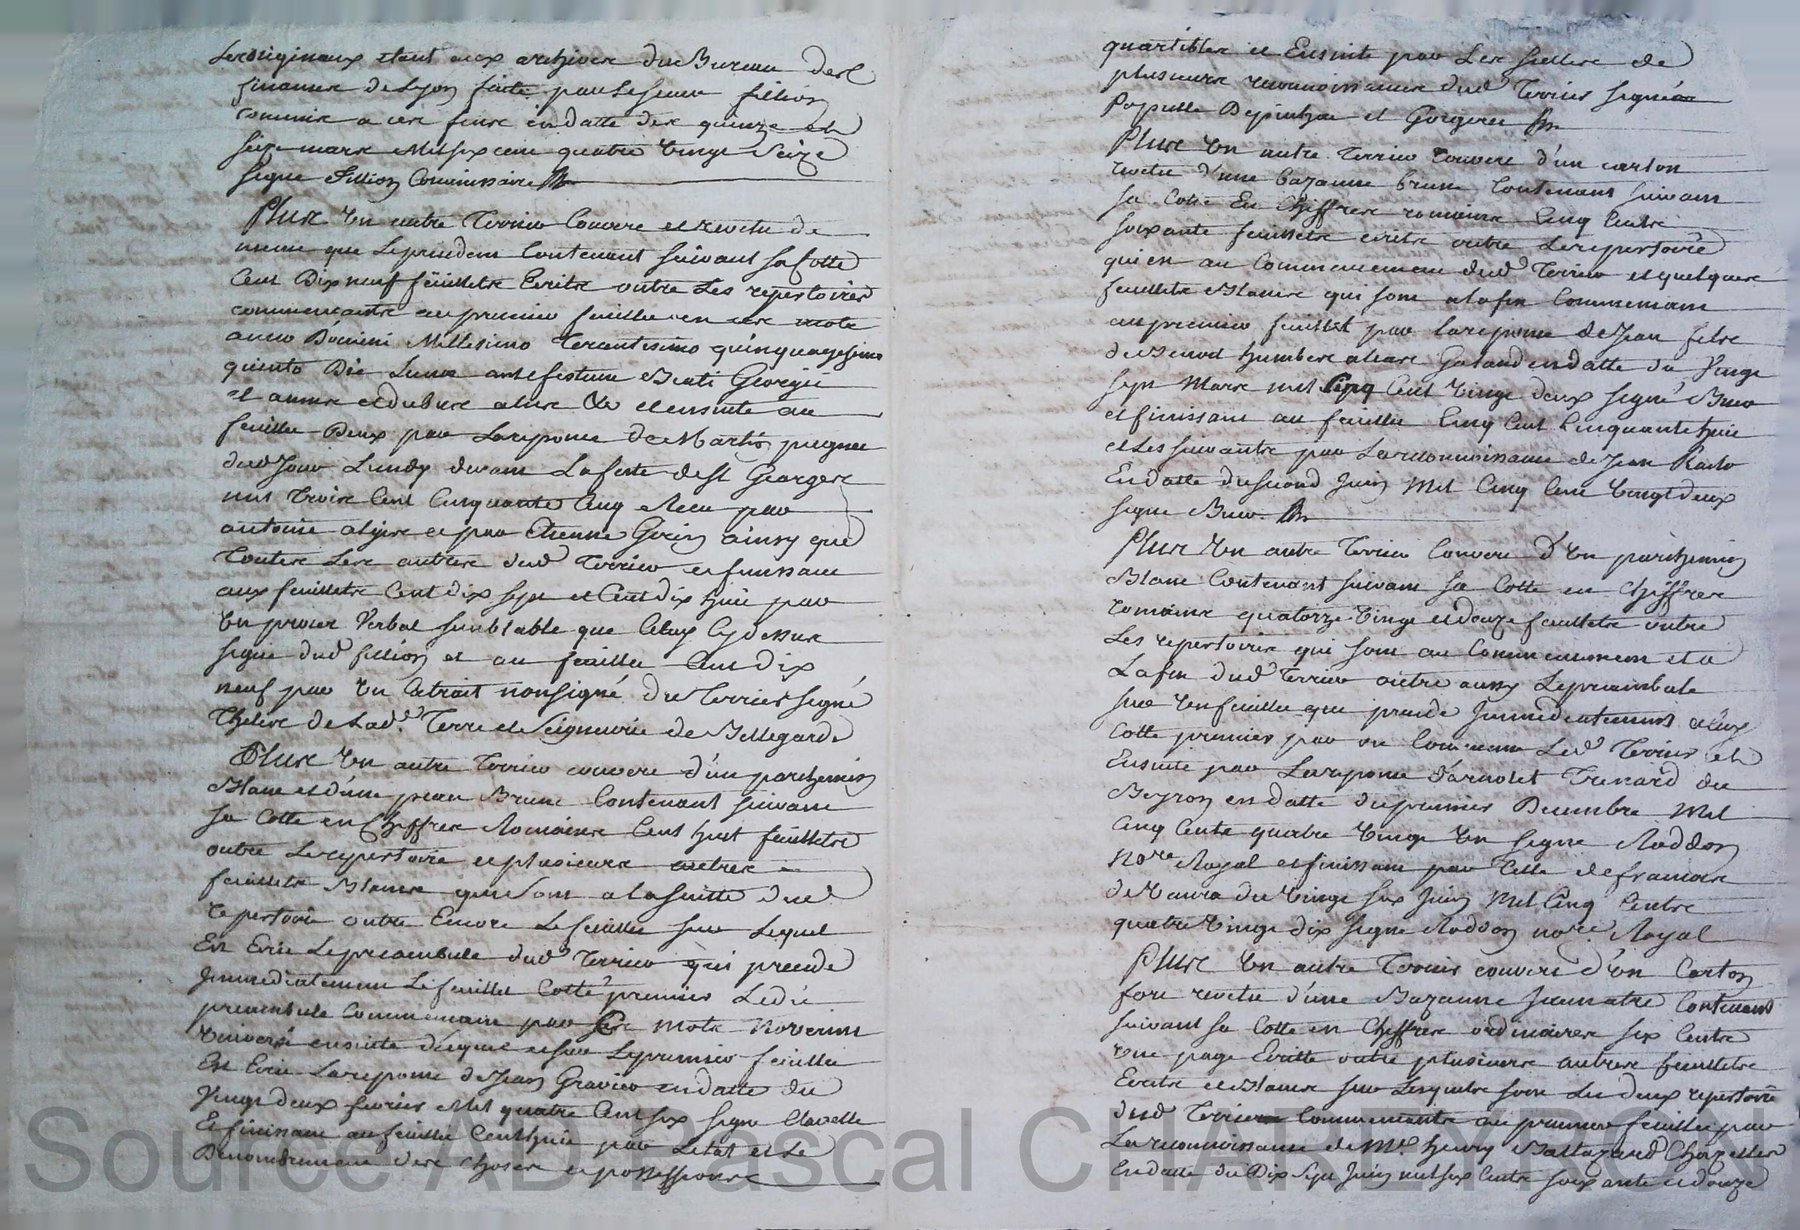 Les originaux etant aux archives du Bureau des
finances de Lyon faite par le sieur fillion
commis a ces fins en datte des quinze et
seize mars Mil six cent quatre vingt seize
signe fillion Commissaire
Plus un autre Terrier Couvert et revetu de
meme que le precedent Contenant suivant sa Cotte
Cent Dix neuf feuillets Ecrits outre Les repertoires
commencant au premier feuillet en ces mots
anno Domini Millesimo Tercentesimo quinquagesimo
quinto Die Lunæ ante festum Beati Georgii
et au
feuillet Deux par La reponse de Martin
dud Jour Lundy devant La feste de St Georges
mil Trois Cent Cinquante Cinq Recu par
antoine et par Etienne Gorin ainsy que
Toutes Les autres dud Terrier et finissant
aux feuillets Cent dix sept et Cent dix huit par
un procès Verbal semblable que Celuy Cy dessus
signe dud fillion et au feuillet Cent dix
neuf par un Extrait non signé du Terrier signé
de Lad. Terre et Seigneurie de Bellegarde
Plus un autre Terrier couvert d'un parchemin
Blanc et d'une peau Brune Contenant suivant
sa Cotte en Chiffres Romaines Cent huit feuillets
outre Le repertoire et plusieurs autres
feuillets Blancs qui sont a la suitte dud
repertoire outre Encore Le feuillet sur Lequel
Est Ecrit Le preambule dud Terrier qui precede
Immediatement Le feuillet Cotté premier Ledit
preambule Commencant par ces mots Noverint
Universi ensuite duquel et sur Le premier feuillet
Est Ecrit La reponse de Jean Gravier en datte du
Vingt deux fevrier Mil quatre Cent six signe
Et finissant au feuillet Cent huit par L'etat et Le
Denombrement des choses et possessions
quartibles et Ensuite par Les
plusieurs reconnoissances dud Terrier signé
Papulle Depinhac et Gorgeret
Plus Un autre Terrier Couvert d'un carton
revetu d'une bazanne brune Contenant suivant
sa Cotte En Chiffres romaines Cinq Cents
soixante feuillets ecrits outre Le repertoire
qui est au Commencement dud Terrier et quelques
feuillets Blancs qui sont a la fin Commencant
au premier feuillet par la reponse de Jean fils
de Benoit humbert alias Galand en datte du Vingt
sept Mars mil Cinq Cent Vingt deux signé
et finissant au feuillet Cinq Cent Cinquante huit
et Les suivants par La reconnoissance de Jean
En datte du second Juin Mil Cinq Cent Vingt deux
signe
Plus Un autre Terrier Couvert d'Un parchemin
Blanc Contenant suivant sa Cotte en Chiffres
romaines quatorze Vingt et douze feuillets outre
Les repertoires qui sont au Commencement et a
La fin dud Terrier outre aussy Le preambule
sur Un feuillet qui precede Immediatement Celuy
Cotté premier par ou Commence Led Terrier et
Ensuite par La reponse d'arnolet Trenard du
Peyron en datte du premier Decembre Mil
Cinq Cents quatre Vingt Un signe Raddon
Nore Royal et finissant par Celle de francois
de du Vingt six Juin Mil Cinq Cents
quatre Vingt dix signe Raddon nore Royal
Plus Un autre Terrier couvert d'Un Carton
fort revetu d'une Bazanne Jaunatre Contenant
suivant sa Cotte en Chiffres ordinaires six Cents
une page Ecritte outre plusieurs autres feuillets
Ecrits et Blancs sur Lesquels sont Les deux repertoires
dud Terrier Commencant au premier feuillet par
La reconnoissance de Mre henry Baltazard
En datte du Dix Sept Juin mil six Cents soixante et douze
Source AD Pascal CHAPEYRON